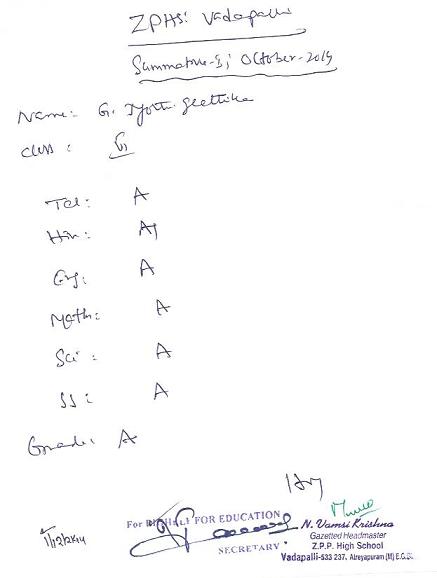 ZPHS: Vadapalli
Summative-I; October-2014
Name: G. Jyothi Geethika
class :
Tel: A
Hin: A
Eng: A
Math: A
Sci: A
SS: A
Grade: A
For FOR EDUCATION
SECRETARY
N. Vamsi Krishna
Gazetted Headmaster
Z.P.P. High School
Vadapalli-533 237, Atreyapuram (M) E.G.Dt.
1/12/2014